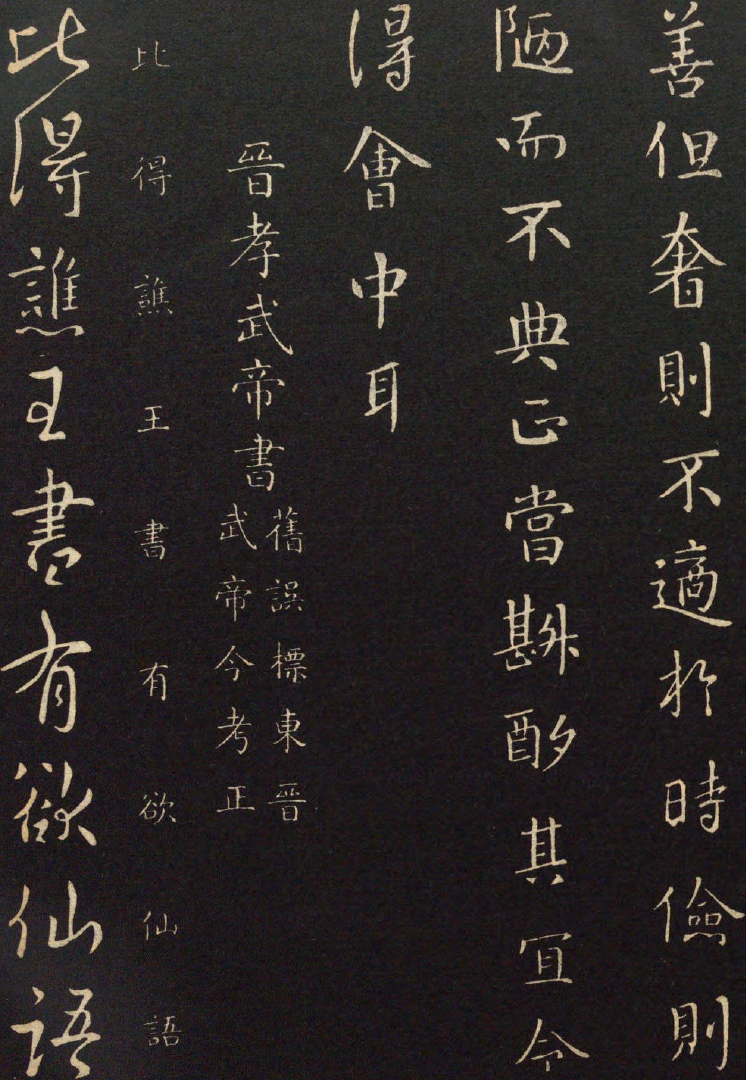 善但奢則不適於時儉則
陋而不典正當斟酌其宜令
得會中耳
晉孝武帝書
舊誤標東晉
武帝今考正
比得譙王書有欲仙語
比得譙王書有欲仙語